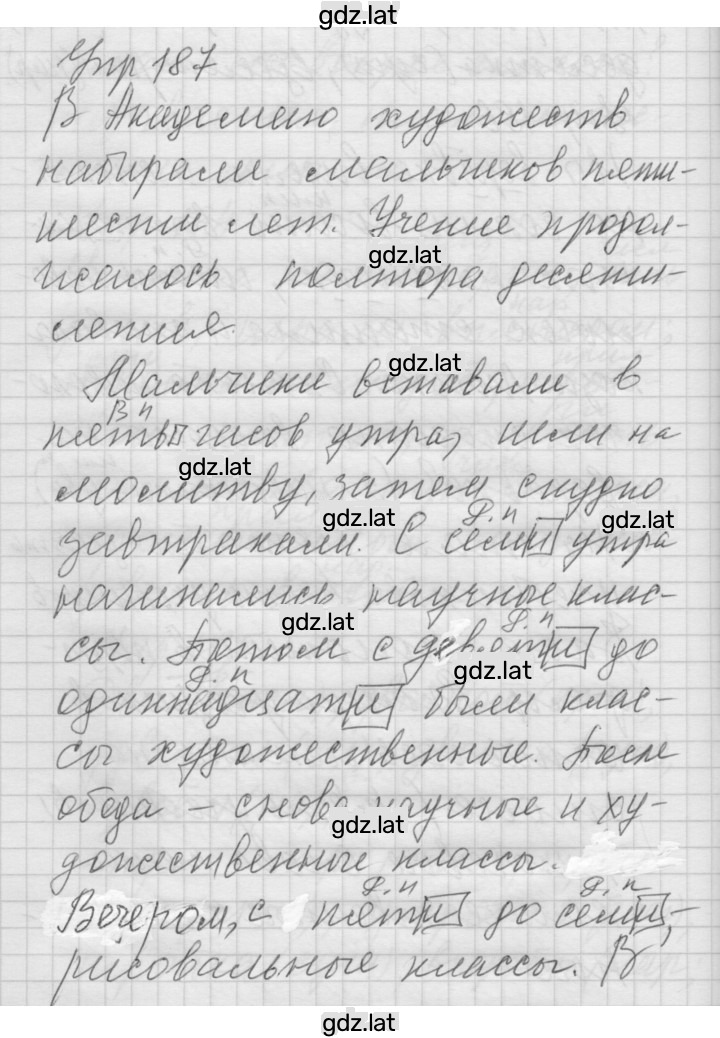 gdz.lat
Упр 187
В Академию художеств
набирали мальчиков пяти-
шести лет. Учение продол-
gdz.lat
жалось полтора десяти-
летия.
gdz.lat
Мальчики вставали в
В п
пять часов утра, шли на
gdz.lat
молитву, затем скудно
gdz.lat Р. п gdz.lat
завтракали. С семи утра
начинались научные клас-
gdz.lat Р. п
сы. Потом с девяти до
Р. п gdz.lat
одиннадцати были клас-
сы художественные. После
обеда – снова научные и ху-
gdz.lat
дожественные классы.
Р. п Р. п
Вечером, с пяти до семи, –
рисовальные классы. В
gdz.lat